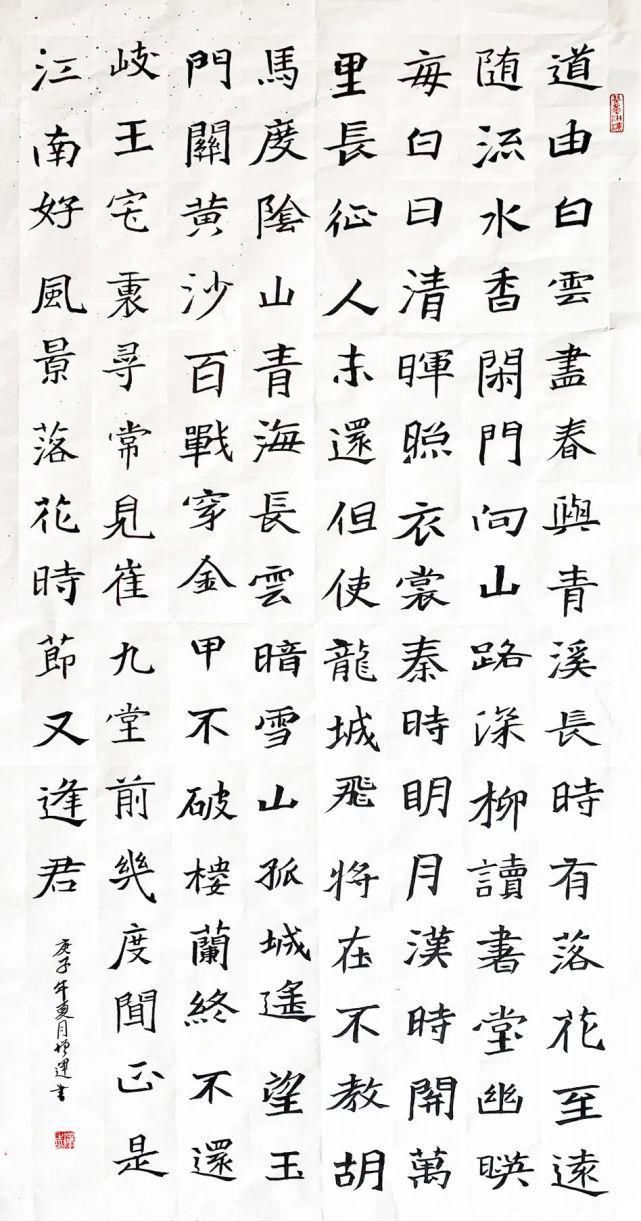 道由白雲盡春與青溪長時有落花至遠
随流水香閑門向山路深柳讀書堂幽暎
每白日清暉照衣裳秦時明月漢時開萬
里長征人未還但使龍城飛将在不教胡
馬度陰山青海長雲暗雪山孤城遙望玉
門關黄沙百戰穿金甲不破樓蘭終不還
岐王宅裏尋常見崔九堂前幾度聞正是
江南好風景落花時節又逢君
庚子年夏月書